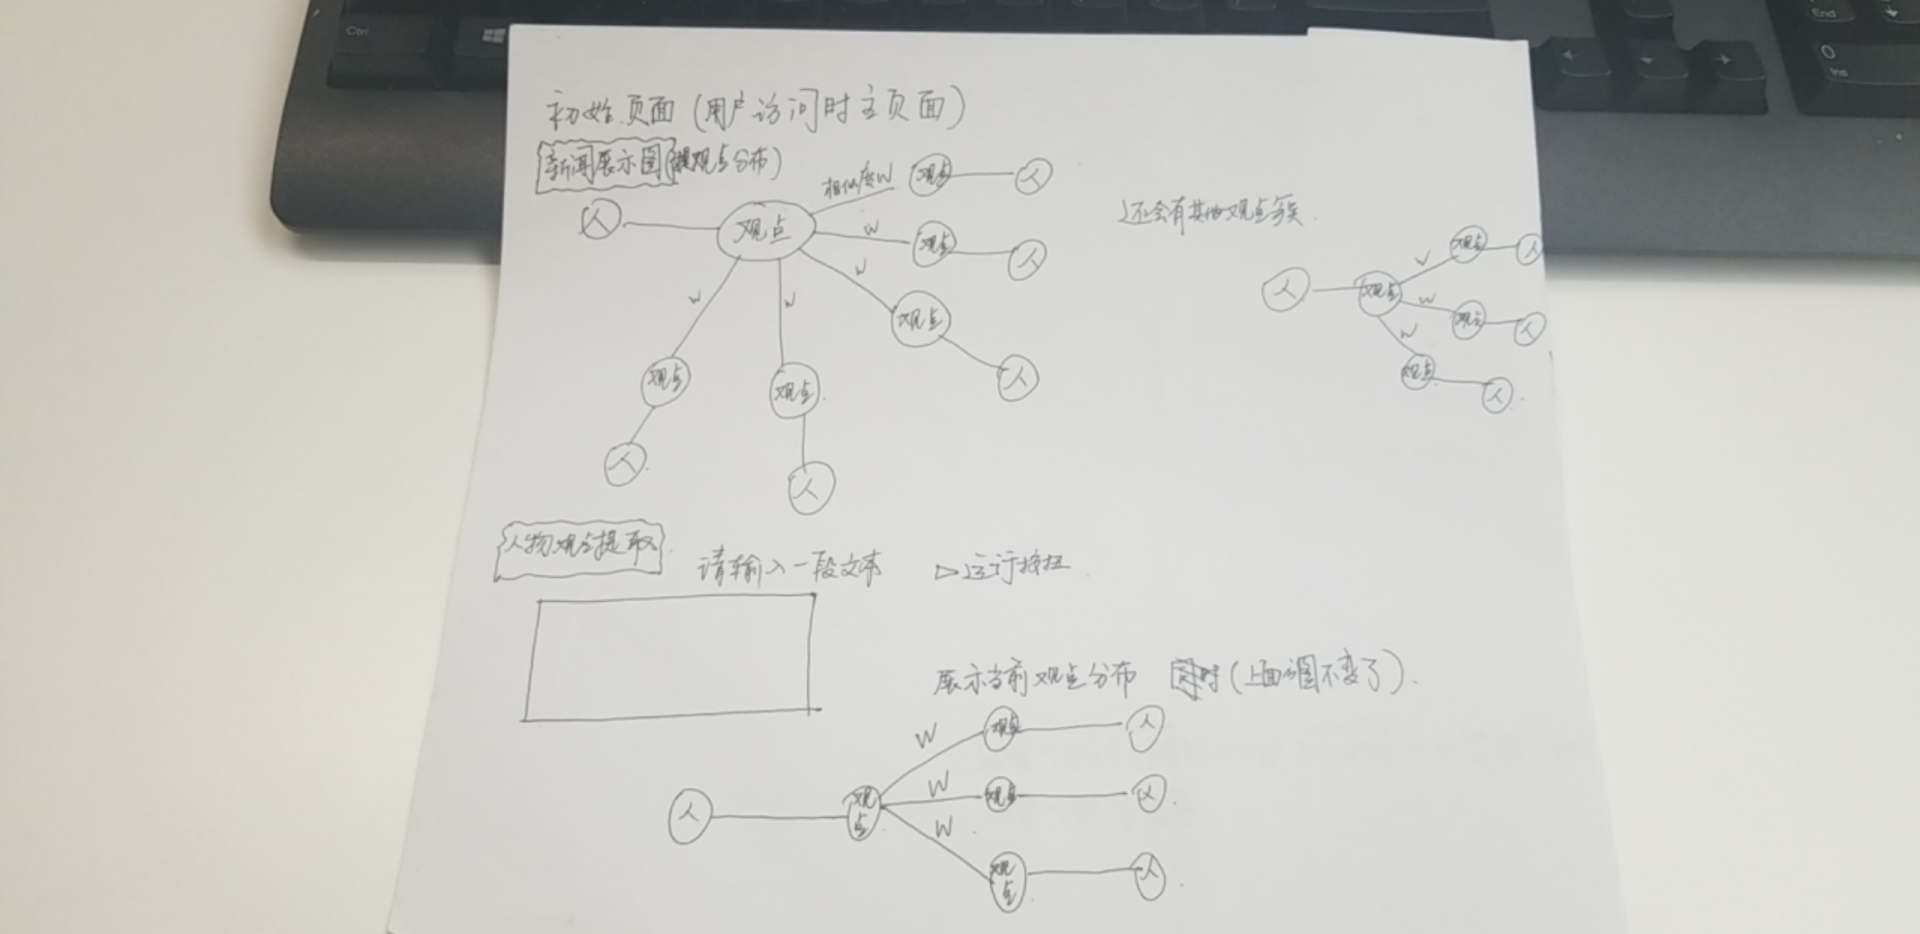 Ctrl
End
0
Ins
初始页面(用户访问时主页面)
新闻展示图(观点分布)
人
观点
相似度W
观点
人
W
观点
人
W
观点
人
W
观点
人
W
观点
人
还会有其他观点簇.
人
观点
W
观点
人
W
观点
人
W
观点
人
人物观点提取
请输入一段文本
▷运行按扭
展示当前观点分布 (上面图不变了).
人
观点
W
观点
人
W
观点
人
W
观点
人